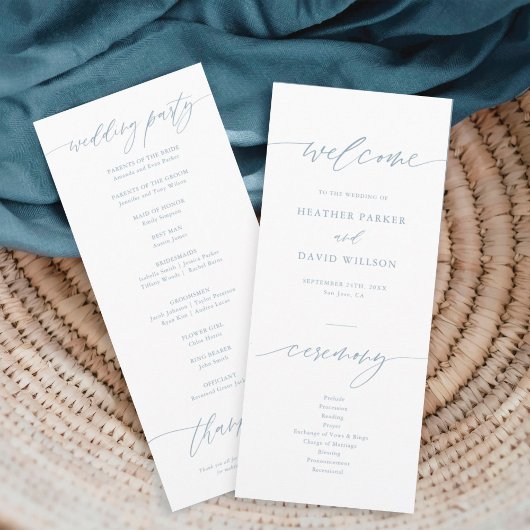 wedding party
PARENTS OF THE BRIDE
Amanda and Evan Parker
PARENTS OF THE GROOM
Jennifer and Tony Willson
MAID OF HONOR
Emily Simpson
BEST MAN
Austin Jones
BRIDESMAIDS
Isabella Smith | Jessica Parker
Tiffany Woods | Rachel Burns
GROOMSMEN
Jacob Johnson | Taylor Peterson
Ryan Kim | Andrea Lucas
FLOWER GIRL
Chloe Harris
RING BEARER
John Smith
OFFICIANT
Reverend Grant
Thank you all
welcome
TO THE WEDDING OF
HEATHER PARKER
and
DAVID WILLSON
SEPTEMBER 24TH, 20XX
San Jose, CA
ceremony
Prelude
Procession
Reading
Prayer
Exchange of Vows & Rings
Charge of Marriage
Blessing
Pronouncement
Recessional